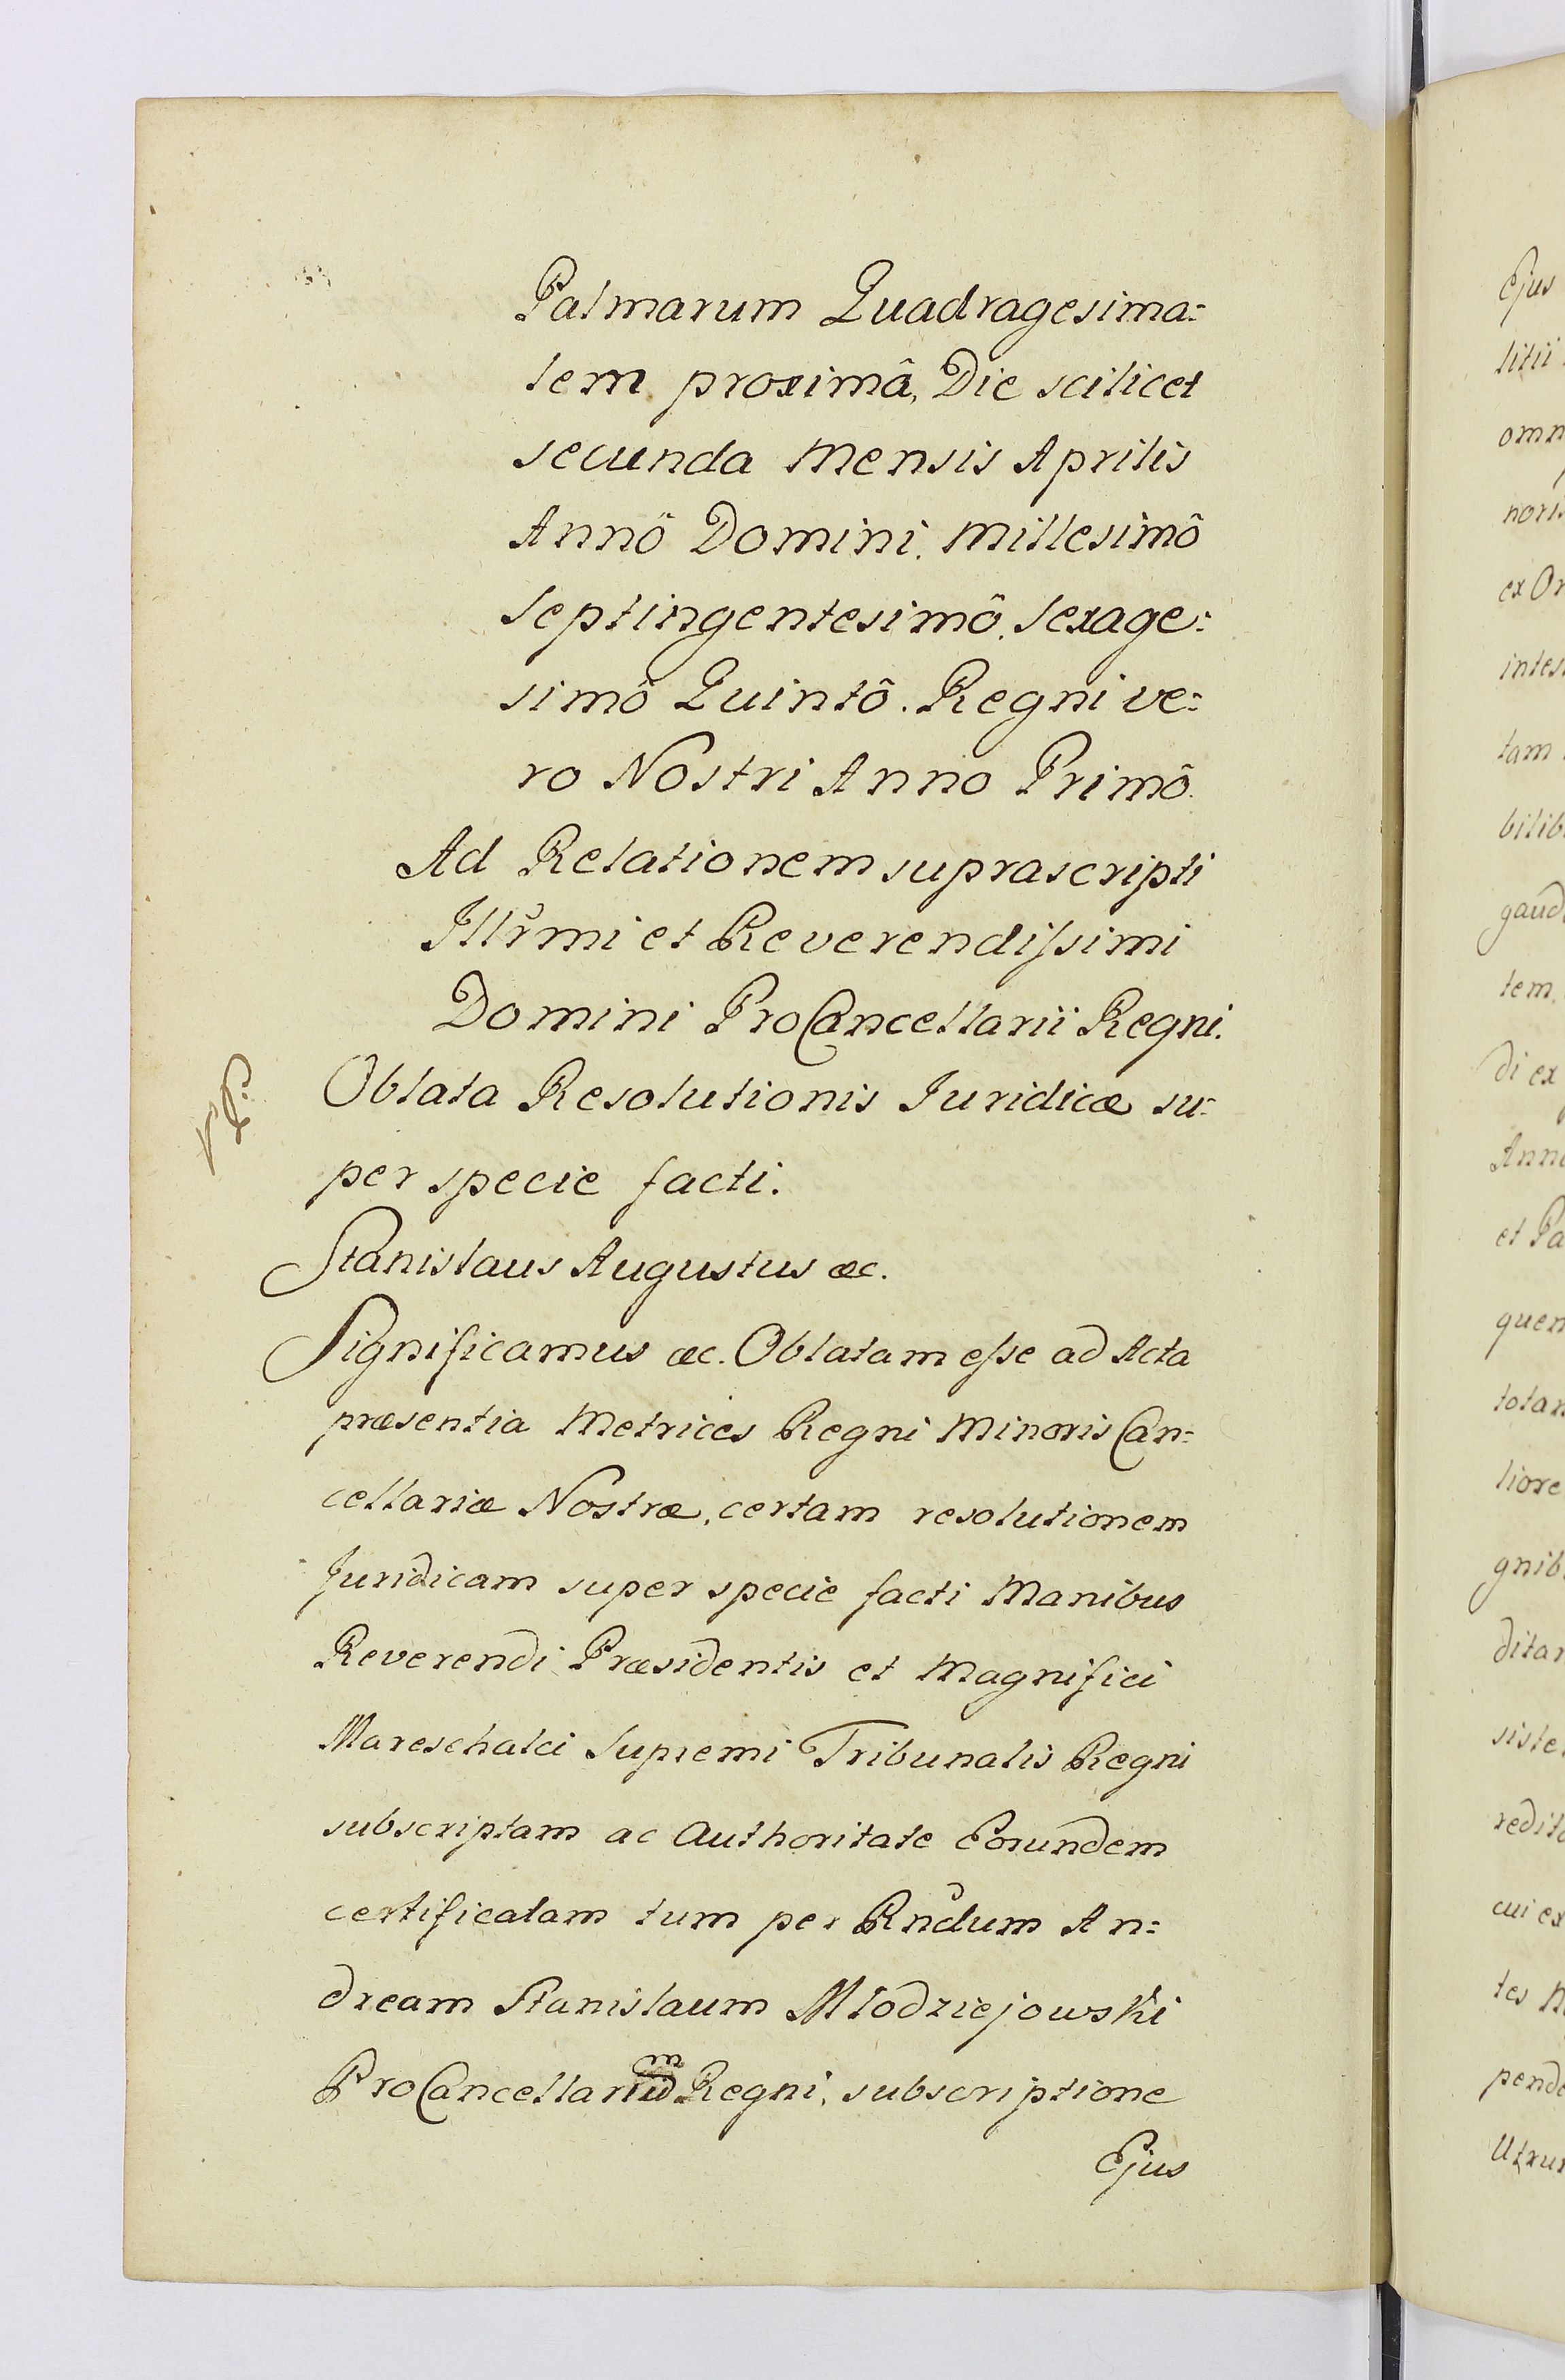 Palmarum Quadragesima=
lem proximâ, Die scilicet
secunda Mensis Aprilis
Annô Domini. Millesimô
Septingentesimô. Sexage=
simô Quintô. Regni ve=
ro Nostri Anno Primô.
Ad Relationem suprascripti
Illrmi et Reverendissimi
Domini ProCancellarii Regni.
Oblata Resolutionis Juridicæ su=
per specie facti.
Stanislaus Augustus &c.
Significamus &c. Oblatam esse ad Acta
præsentia Metrices Regni Minoris Can=
cellariæ Nostræ, certam resolutionem
Juridicam super specie facti Manibus
Reverendi Præsidentis et Magnifici
Mareschalci Supremi Tribunalis Regni
subscriptam ac Authoritate Eorundem
certificatam tum per Rndum An=
dream Stanislaum Młodziejowski
ProCancellarium Regni, subscriptione
Ejus
Ejus
litii
omn
noris
ex Or
intes
tam
bilib
gaud
tem
di ex
Anno
et Pa
quem
totam
liore
gnib
ditar
siste
redita
cui ex
tes
pende
Utrum